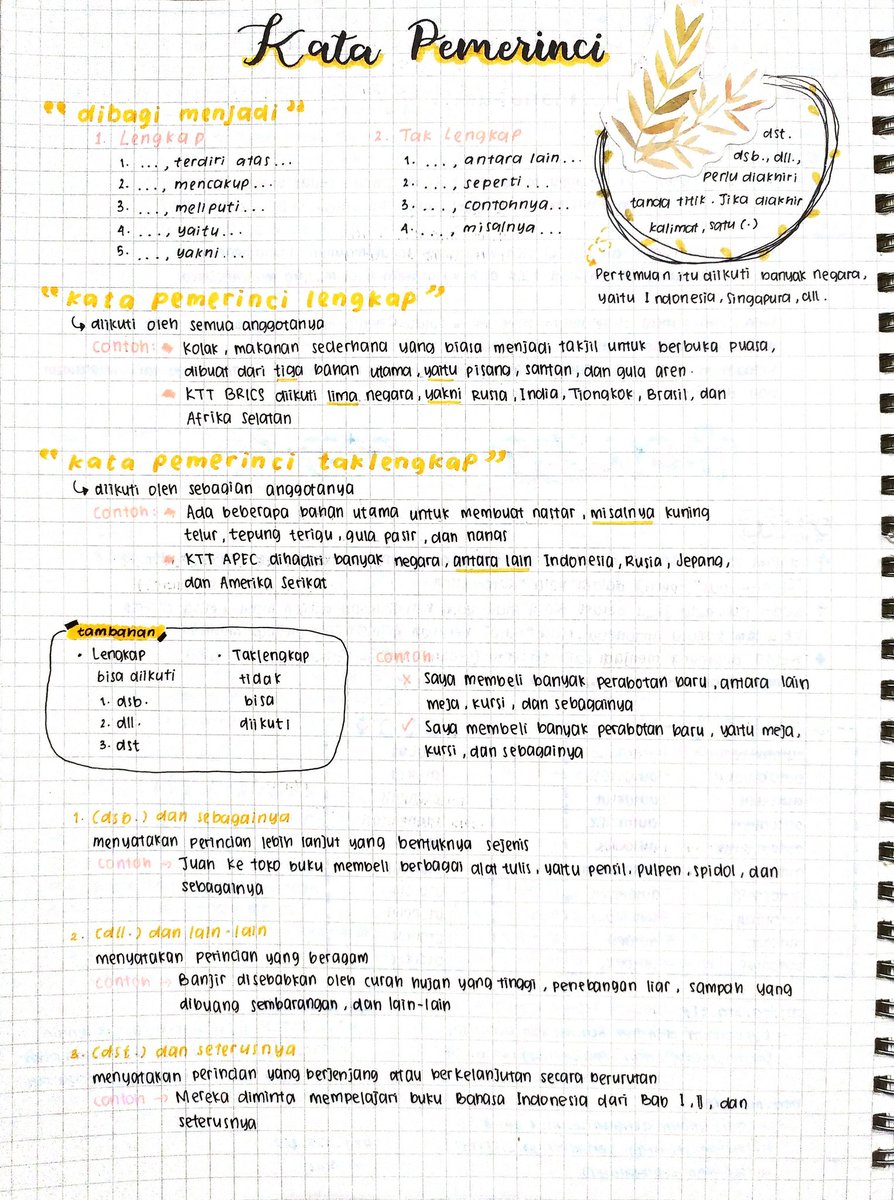 Kata Pemerinci
"dibagi menjadi"
1. Lengkap
1. ..., terdiri atas...
2. ..., mencakup...
3. ..., meliputi...
4. ..., yaitu...
5. ..., yakni...
2. Tak Lengkap
1. ..., antara lain...
2. ..., seperti...
3. ..., contohnya...
4. ..., misalnya...
dst.
dsb., dll.,
Perlu diakhiri
tanda titik. Jika diakhir
kalimat, satu (.)
Pertemuan itu diikuti banyak negara,
yaitu Indonesia, Singapura, dll.
"kata pemerinci lengkap"
↳ diikuti oleh semua anggotanya
contoh: Kolak, makanan sederhana yang biasa menjadi takjil untuk berbuka puasa,
dibuat dari tiga bahan utama, yaitu pisang, santan, dan gula aren.
KTT BRICS diikuti lima negara, yakni Rusia, India, Tiongkok, Brasil, dan
Afrika Selatan
"kata pemerinci taklengkap"
↳ diikuti oleh sebagian anggotanya
contoh: Ada beberapa bahan utama untuk membuat nastar, misalnya kuning
telur, tepung terigu, gula pasir, dan nanas
KTT APEC dihadiri banyak negara, antara lain Indonesia, Rusia, Jepang,
dan Amerika Serikat
tambahan
• Lengkap
bisa diikuti
1. dsb.
2. dll.
3. dst
• Taklengkap
tidak
bisa
diikuti
contoh:
x Saya membeli banyak perabotan baru, antara lain
meja, kursi, dan sebagainya
✓ Saya membeli banyak perabotan baru, yaitu meja,
kursi, dan sebagainya
1. (dsb.) dan sebagainya
menyatakan perincian lebih lanjut yang bentuknya sejenis
contoh → Juan ke toko buku membeli berbagai alat tulis, yaitu pensil, pulpen, spidol, dan
sebagainya
2. (dll.) dan lain-lain
menyatakan perincian yang beragam
contoh → Banjir disebabkan oleh curah hujan yang tinggi, penebangan liar, sampah yang
dibuang sembarangan, dan lain-lain
3. (dst.) dan seterusnya
menyatakan perincian yang berjenjang atau berkelanjutan secara berurutan
contoh → Mereka diminta mempelajari buku Bahasa Indonesia dari Bab I, II, dan
seterusnya